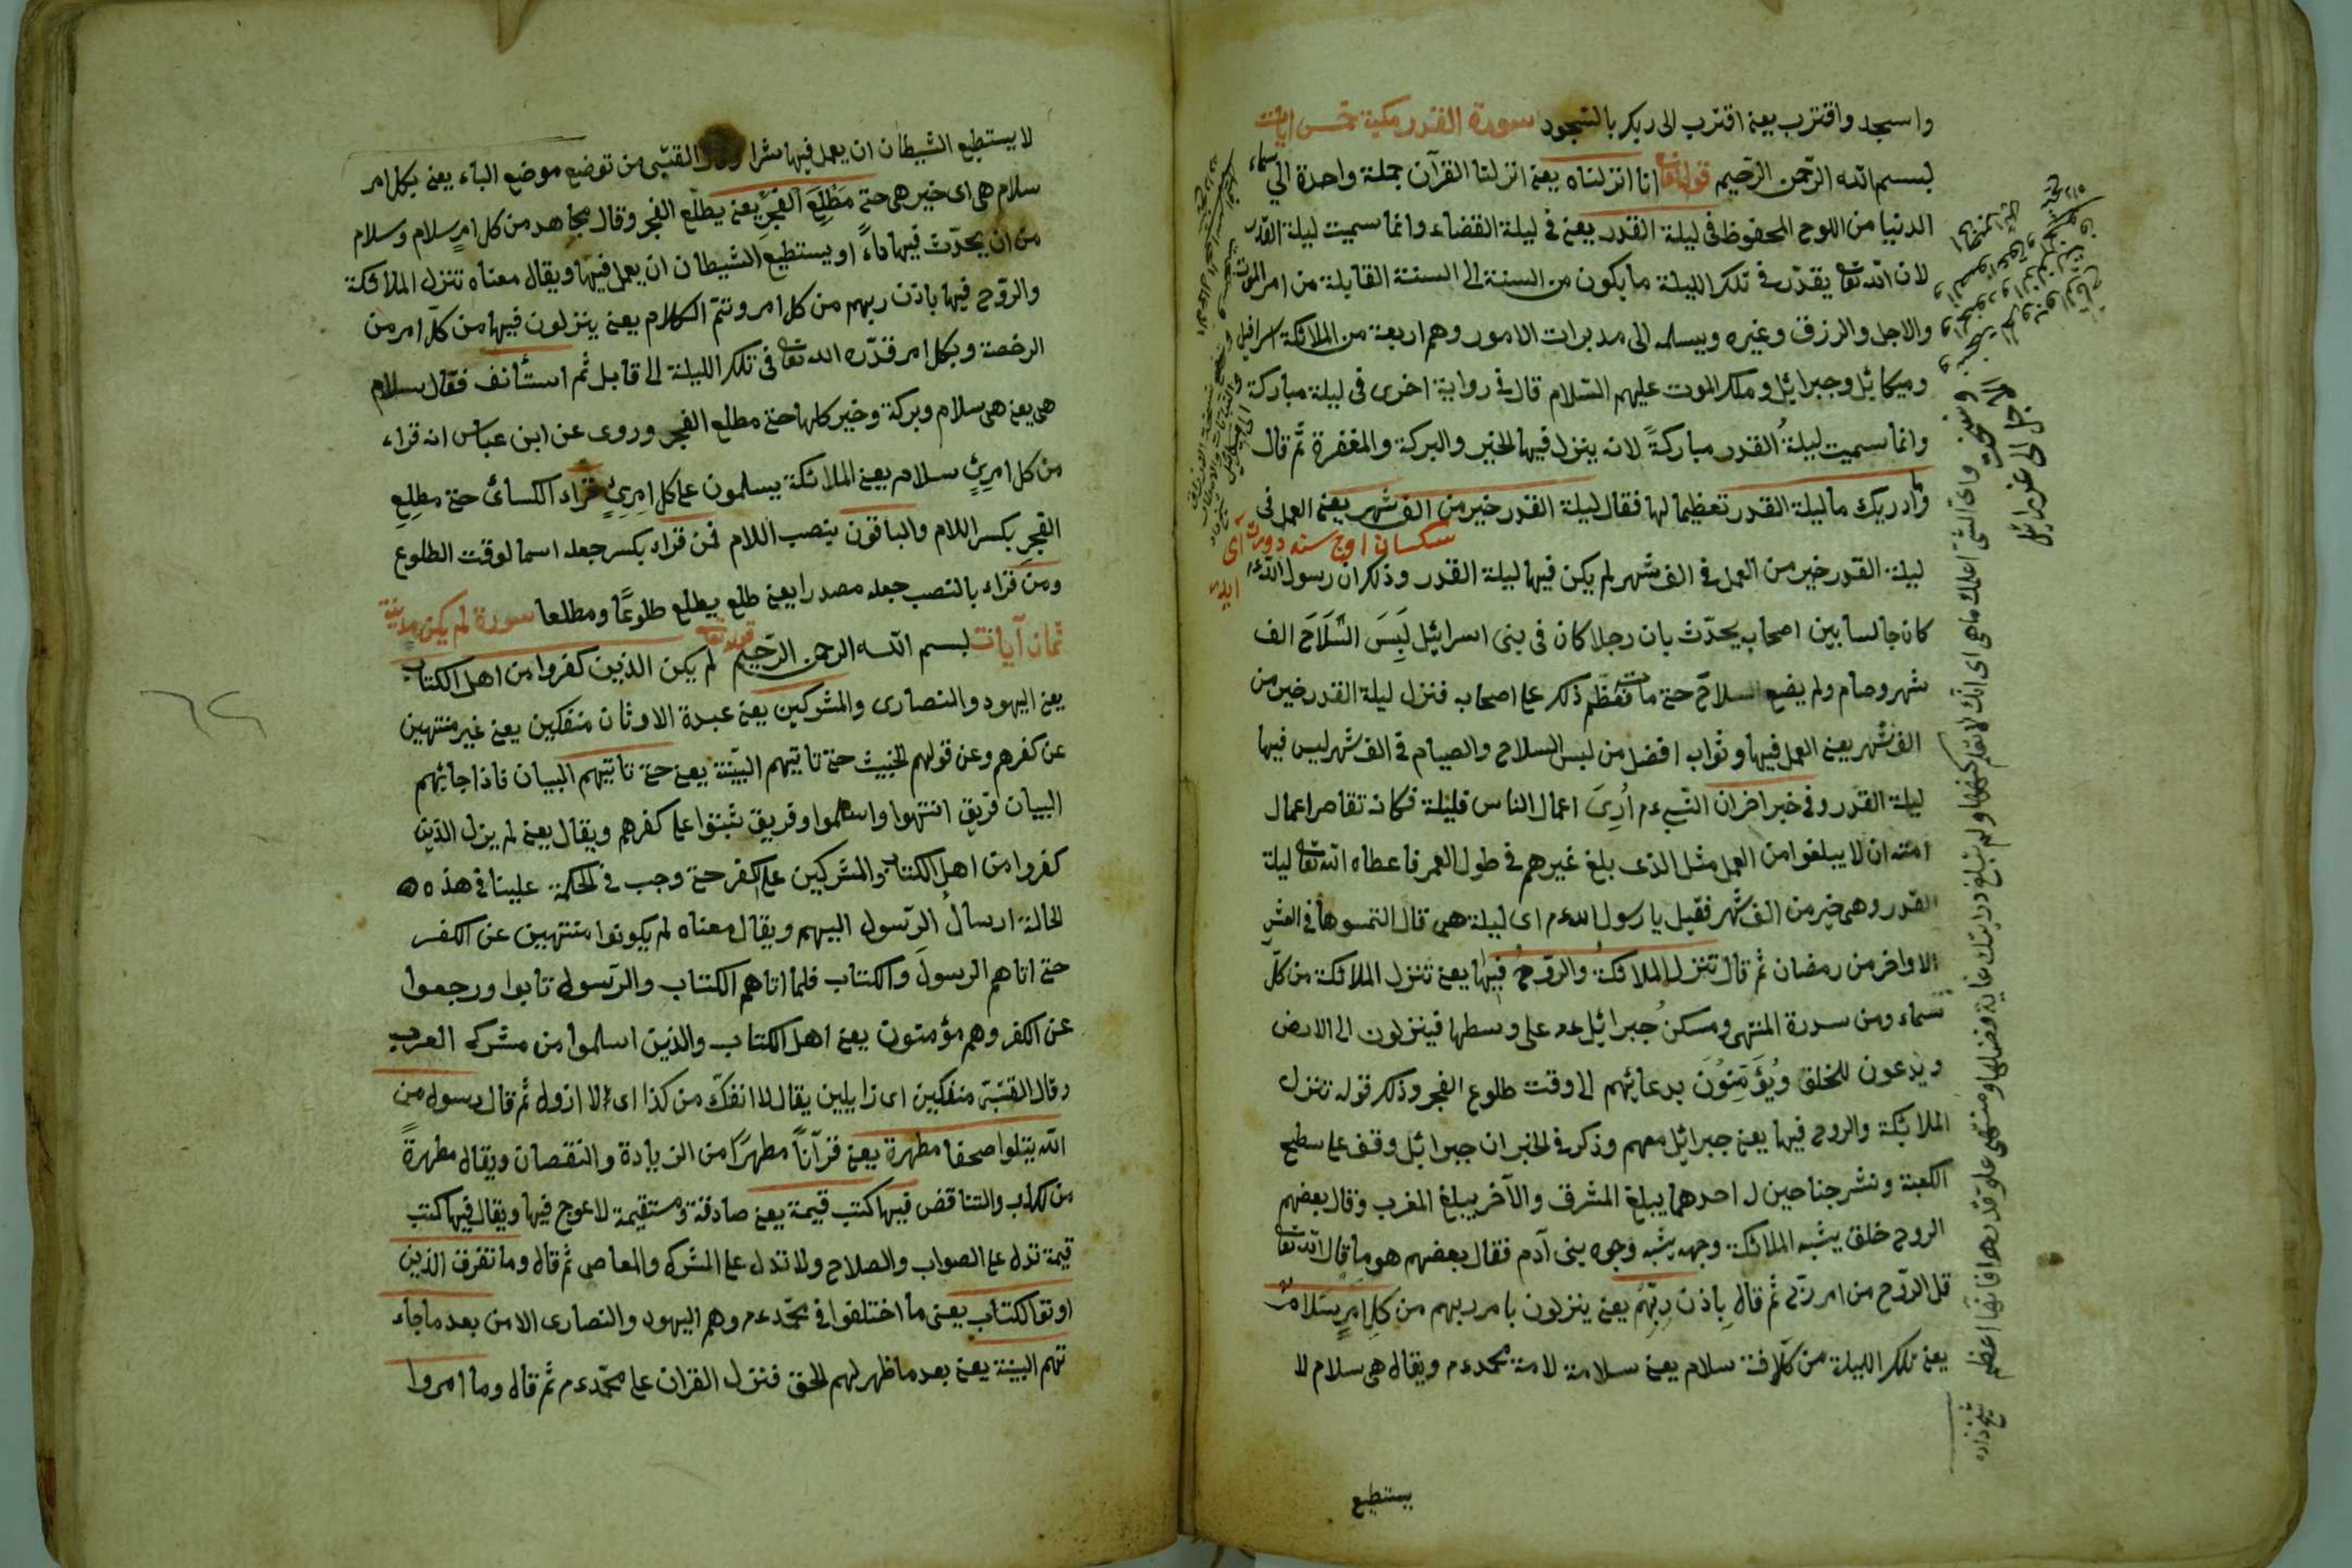 واسجد واقترب يعنى اقترب الى ربك بالسجود سورة القدر مكية خمس ايات
بسم الله الرحمن الرحيم قوله تعا انا انزلناه يعنى انزلنا القرآن جملة واحدة الى سماء
الدنيا من اللوح المحفوظ فى ليلة القدر يعنى فى ليلة القضاء وانما سميت ليلة القدر
لان الله تعا يقدر فى تلك الليلة ما يكون من السنة الى السنة القابلة من امر الموت
والاجل والرزق وغيره ويسلمه الى مدبرات الامور وهم اربعة من الملائكة اسرافيل
وميكائيل وجبرائيل وملك الموت عليهم السلام قال فى رواية اخرى فى ليلة مباركة
وانما سميت ليلة القدر مباركةً لانه ينزل فيها الخير والبركة والمغفرة ثم قال
وما ادريك ما ليلة القدر تعظيما لها فقال ليلة القدر خير من الف شهر يعنى العمل فى
سكسان اوج سنه دورت آى
ليلة القدر خير من العمل فى الف شهر لم يكن فيها ليلة القدر وذكر ان رسول الله عم
كان جالسا بين اصحابه يحدّث بان رجلا كان فى بنى اسرائيل لَبِسَ السَّلَاحَ الف
شهر وصام ولم يضع السلاح حتى مات فعظم ذكر على اصحابه فنزل ليلة القدر خير من
الف شهر يعنى العمل فيها وثوابه افضل من لبس السلاح والصيام فى الف شهر ليس فيها
ليلة القدر وفى خبر اخر ان النبى عم اُرِىَ اعمال الناس قليلة فكانه تقاصر اعمال
امته ان لا يبلغوا من العمل مثل الذى بلغ غيرهم فى طول العمر فاعطاه الله تعا ليلة
القدر وهى خير من الف شهر فقيل يا رسول الله عم اى ليلة هى قال التمسوها فى العشر
الاواخر من رمضان ثم قال تنزل الملائكة والروح فيها يعنى تنزل الملائكة من كلّ
سماء ومن سدرة المنتهى ومسكن جبرائيل عم على وسطها فينزلون الى الارض
ويدعون للخلق ويُؤَمِّنُوُنَ بدعائهم الى وقت طلوع الفجر وذكر قوله تنزل
الملائكة والروح فيها يعنى جبرائيل معهم وذكر فى الخبر ان جبرائيل وقف على سطح
الكعبة ونشر جناحين له احدهما يبلغ المشرق والآخر يبلغ المغرب وقال بعضهم
الروح خلق يشبه الملائكة وجهه يشبه وجوه بنى آدم فقال بعضهم هو ما قال الله تعا
قل الروح من امر ربّى ثم قال بِاذن رِبّهِمْ يعنى ينزلون بامر ربهم من كلِ امرٍ سَلامٌ
يعنى تلك الليلة من كلّ افة سلام يعنى سلامة لامة محمد عم ويقال هى سلام لا
يستطيع
لا يستطيع الشيطان ان يعمل فيها شرا وقال القتبى من توضع موضع الباء يعنى بكل امر
سلام هى اى خير هى حتى مَطْلِعَ الْفَجْرِ يعنى يطلع الفجر وقال مجاهد من كل امرٍ سلام وسلام
من ان يحدّث فيها داءً او يستطيع الشيطان ان يعمل فيها ويقال معناه تنزل الملائكة
والروح فيها باذن ربهم من كل امر وتتم الكلام يعنى ينزلون فيها من كلّ امر من
الرخصة وبكل امر قدّره الله تعا فى تلك الليلة الى قابل ثم استأنف فقال سلام
هى يعنى هى سلام وبركة وخير كلها حتى مطلع الفجر وروى عن ابن عباس انه قراء
من كل امرِئٍ سلام يعنى الملائكة يسلمون على كل امِرِئٍ قراء الكسائى حتى مطلِعِ
الفجرِ بكسر اللام والباقون بنصب اللام فمن قراء بكسر جعله اسما لوقت الطلوع
ومن قراء بالنصب جعله مصدرا يعنى طلع يطلع طلوعًا ومطلعا سورة لم يكن مدنية
ثمان آيات بسم الله الرحمن الرّحيم قوله تعا لم يكن الذين كفروا من اهل الكتاب
يعنى اليهود والنصارى والمشركين يعنى عبدة الاوثان منفكين يعنى غير منتهين
عن كفرهم وعن قولهم الخبيث حتى تاتيهم البيّنة يعنى حتى تاتيهم البيان فاذا جائهم
البيان فريق انتهوا واسلموا وفريق ثبتوا على كفرهم ويقال يعنى لم يزل الذين
كفروا من اهل الكتاب والمشركين على الكفر حتى وجب فى الحكمة علينا فى هذه
الحالة ارسال الرّسول اليهم ويقال معناه لم يكونوا منتهين عن الكفر
حتى اتاهم الرسول والكتاب فلما اتاهم الكتاب والرّسول تابوا ورجعوا
عن الكفر وهم مؤمنون يعنى اهل الكتاب والذين اسلموا من مشركى العرب
وقال القتبى منفكين اى زايلين يقال لا انفكّ من كذا اى لا ازول ثم قال رسول من
الله يتلوا صحفا مطهرة يعنى قرآنًا مطهرًا من الزيادة والنقصان ويقال مطهرةً
من الكذب والتناقض فيها كتب قيمة يعنى صادقة ومستقيمة لا عوج فيها ويقال فيها كتب
قيمة تدل على الصواب والصلاح ولا تدل على الشرك والمعاصى ثم قال وما تفرق الذين
اوتوا الكتاب يعنى ما اختلفوا فى محمّد عم وهم اليهود والنصارى الا من بعد ما جاء
تهم البينة يعنى بعد ما ظهر لهم الحق فنزل القران على محمّد عم ثم قال وما امروا